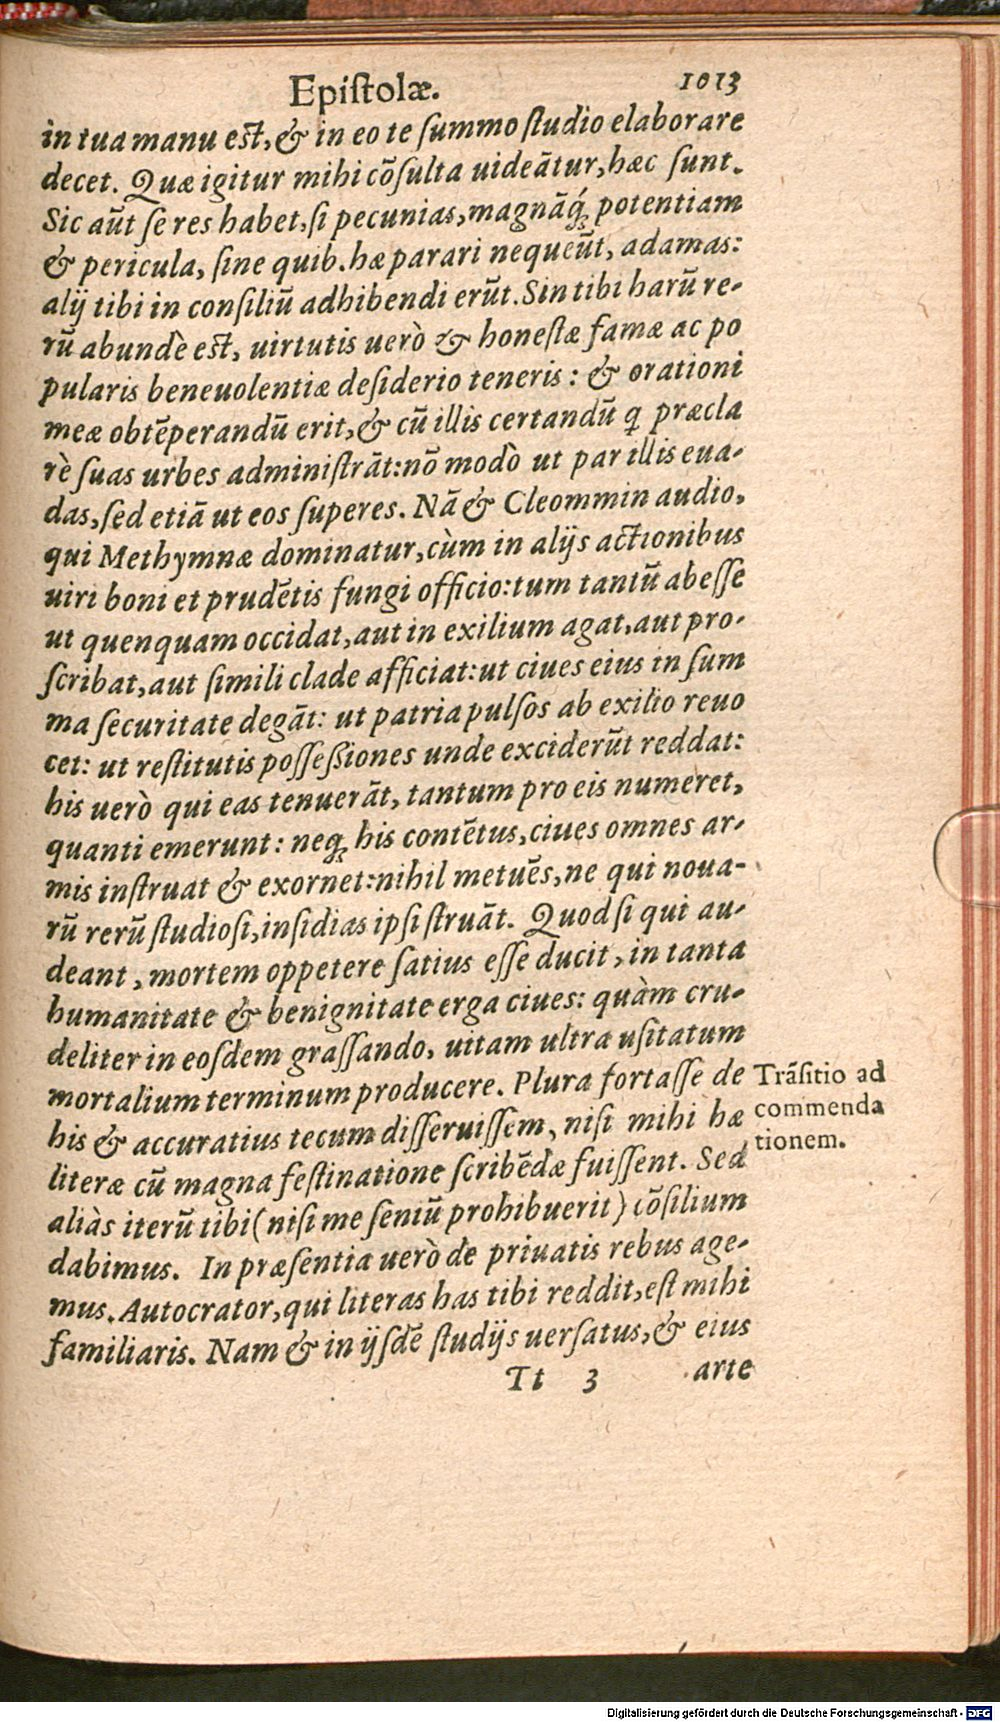 Epiſtolæ. 1013
in tua manu eſt, & in eo te ſummo ſtudio elaborare
decet. Quæ igitur mihi cõſulta uideãtur, hæc ſunt.
Sic aũt ſe res habet, ſi pecunias, magnãq́; potentiam
& pericula, ſine quib. hæ parari nequeũt, adamas:
alij tibi in conſiliũ adhibendi erũt. Sin tibi harũ re-
rũ abundè eſt, uirtutis uerò & honeſtæ famæ ac po
pularis beneuolentiæ deſiderio teneris: & orationi
meæ obtẽperandũ erit, & cũ illis certandũ q præcla
rè ſuas urbes adminiſtrãt: nõ modò ut par illis eua-
das, ſed etiã ut eos ſuperes. Nã & Cleommin audio,
qui Methymnæ dominatur, cùm in alijs actionibus
uiri boni et prudẽtis fungi officio: tum tantũ abeſſe
ut quenquam occidat, aut in exilium agat, aut pro-
ſcribat, aut ſimili clade afficiat: ut ciues eius in ſum
ma ſecuritate degãt: ut patria pulſos ab exilio reuo
cet: ut reſtitutis poſſeßiones unde exciderũt reddat:
his uerò qui eas tenuerãt, tantum pro eis numeret,
quanti emerunt: neq; his contẽtus, ciues omnes ar-
mis inſtruat & exornet: nihil metuẽs, ne qui noua-
rũ rerũ ſtudioſi, inſidias ipſi ſtruãt. Quod ſi qui au-
deant, mortem oppetere ſatius eſſe ducit, in tanta
humanitate & benignitate erga ciues: quàm cru-
deliter in eoſdem graſſando, uitam ultra uſitatum
mortalium terminum producere. Plura fortaſſe de
his & accuratius tecum diſſeruiſſem, niſi mihi hæ
literæ cũ magna feſtinatione ſcribẽdæ fuiſſent. Sed
aliàs iterũ tibi (niſi me ſeniũ prohibuerit) cõſilium
dabimus. In præſentia uerò de priuatis rebus age-
mus. Autocrator, qui literas has tibi reddit, eſt mihi
familiaris. Nam & in ijſdẽ ſtudijs uerſatus, & eius
Tt 3 arte
Trãſitio ad
commenda
tionem.
Digitalisierung gefördert durch die Deutsche Forschungsgemeinschaft - DFG